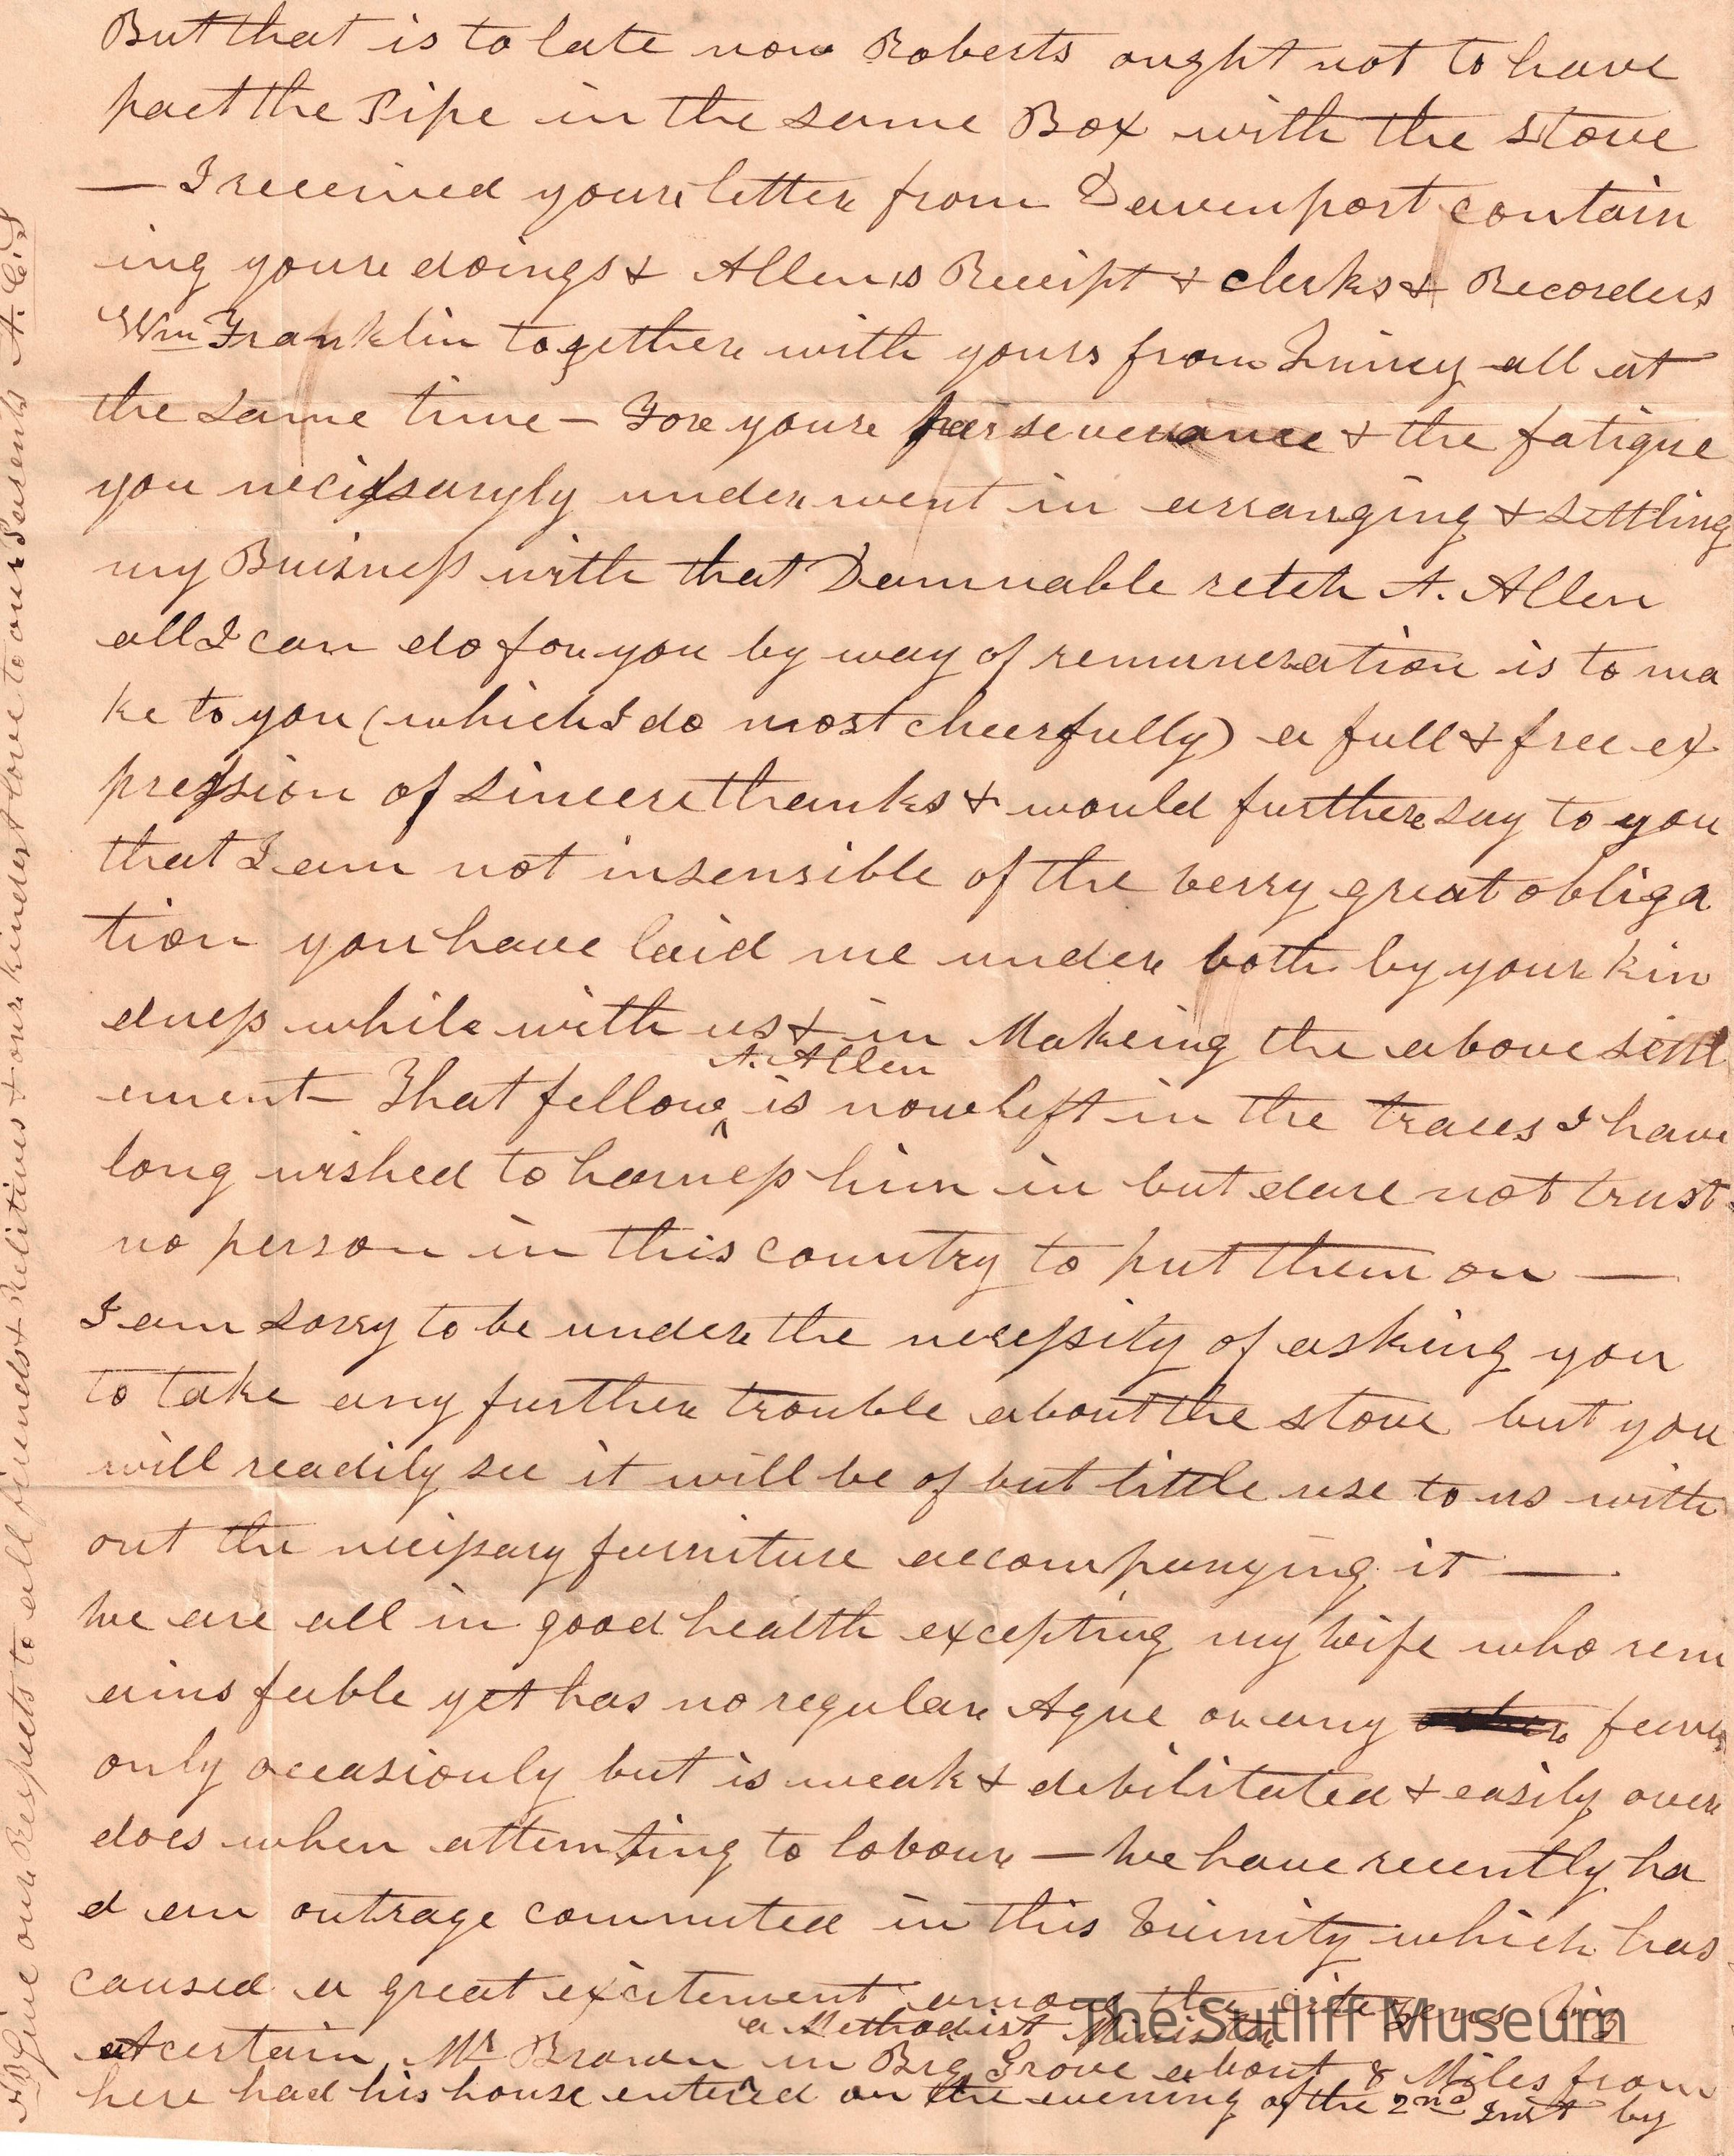 But that is to late now Roberts ought not to have
pact the Pipe in the same Box with the stove
— I received youre letter from Davenport contain
ing youre doings & Allens Receipt & clerks & Recorders
Wm Franklin together with yours from Quincy all at
the same time — Fore youre perseverance & the fatigue
you necissaryly underwent in arranging & settling
my Buisness with that Damnable retch A. Allen
all I can do for you by way of remuneration is to ma
ke to you (which I do most cheerfully) a full & free ex
pression of sincere thanks & would further say to you
that I am not insensible of the verry great obliga
tion you have laid me under both by your kin
dness while with us & in Makeing the above settl
A. Allen
ement — That fellow ^ is now left in the traces I have
long wished to harness him in but dare not trust
no person in this country to put them on —
I am sorry to be under the necessity of asking you
to take any further trouble about the stove but you
will readily see it will be of but little use to us with
out the necissary furniture accompanying it —
We are all in good health excepting my wife who rem
ains feeble yet has no regular Ague or any fever
only occasionly but is weak & debilitated & easily over
does when attemting to labour — We have recently ha
d an outrage commited in this vicinity which has
caused a great excitement among the citizens
a Methodist Minister
a certain ^ Mr Brown in Big Grove about 8 Miles from
here had his house entered on the evening of the 2nd Inst by
Give our Respects to all friends & Relitives & our kindest love to our Parents A. C. S
The Sutliff Museum